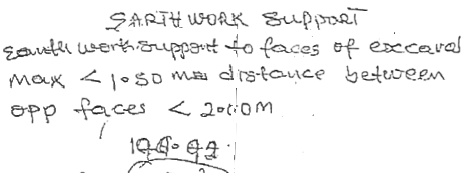 EARTHWORK Support
Earth work support to faces of excavat
Max < 1.50 m distance between
opp faces < 2.00M